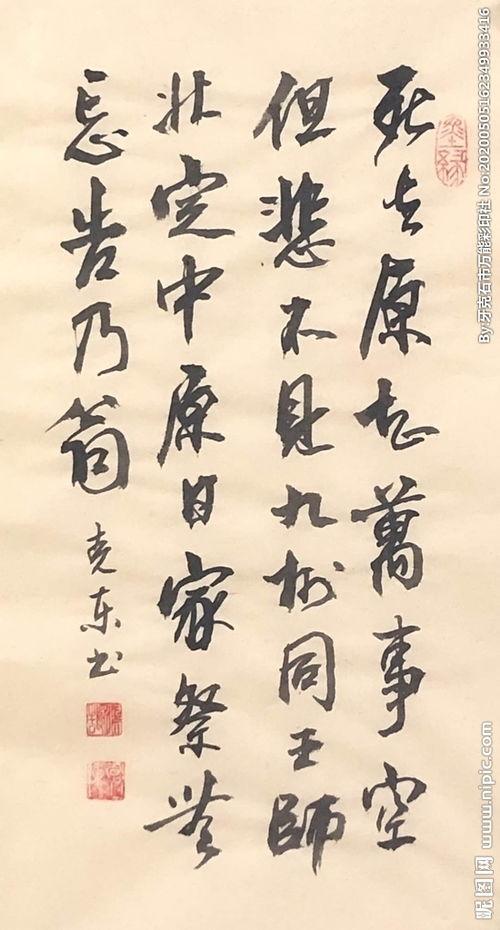 死去原知萬事空
但悲不見九州同王師
北定中原日家祭無
忘告乃翁
克东书
墨緣
By:牙克石市万能彩印社 No:20200505162349933416
昵图网 www.nipic.com